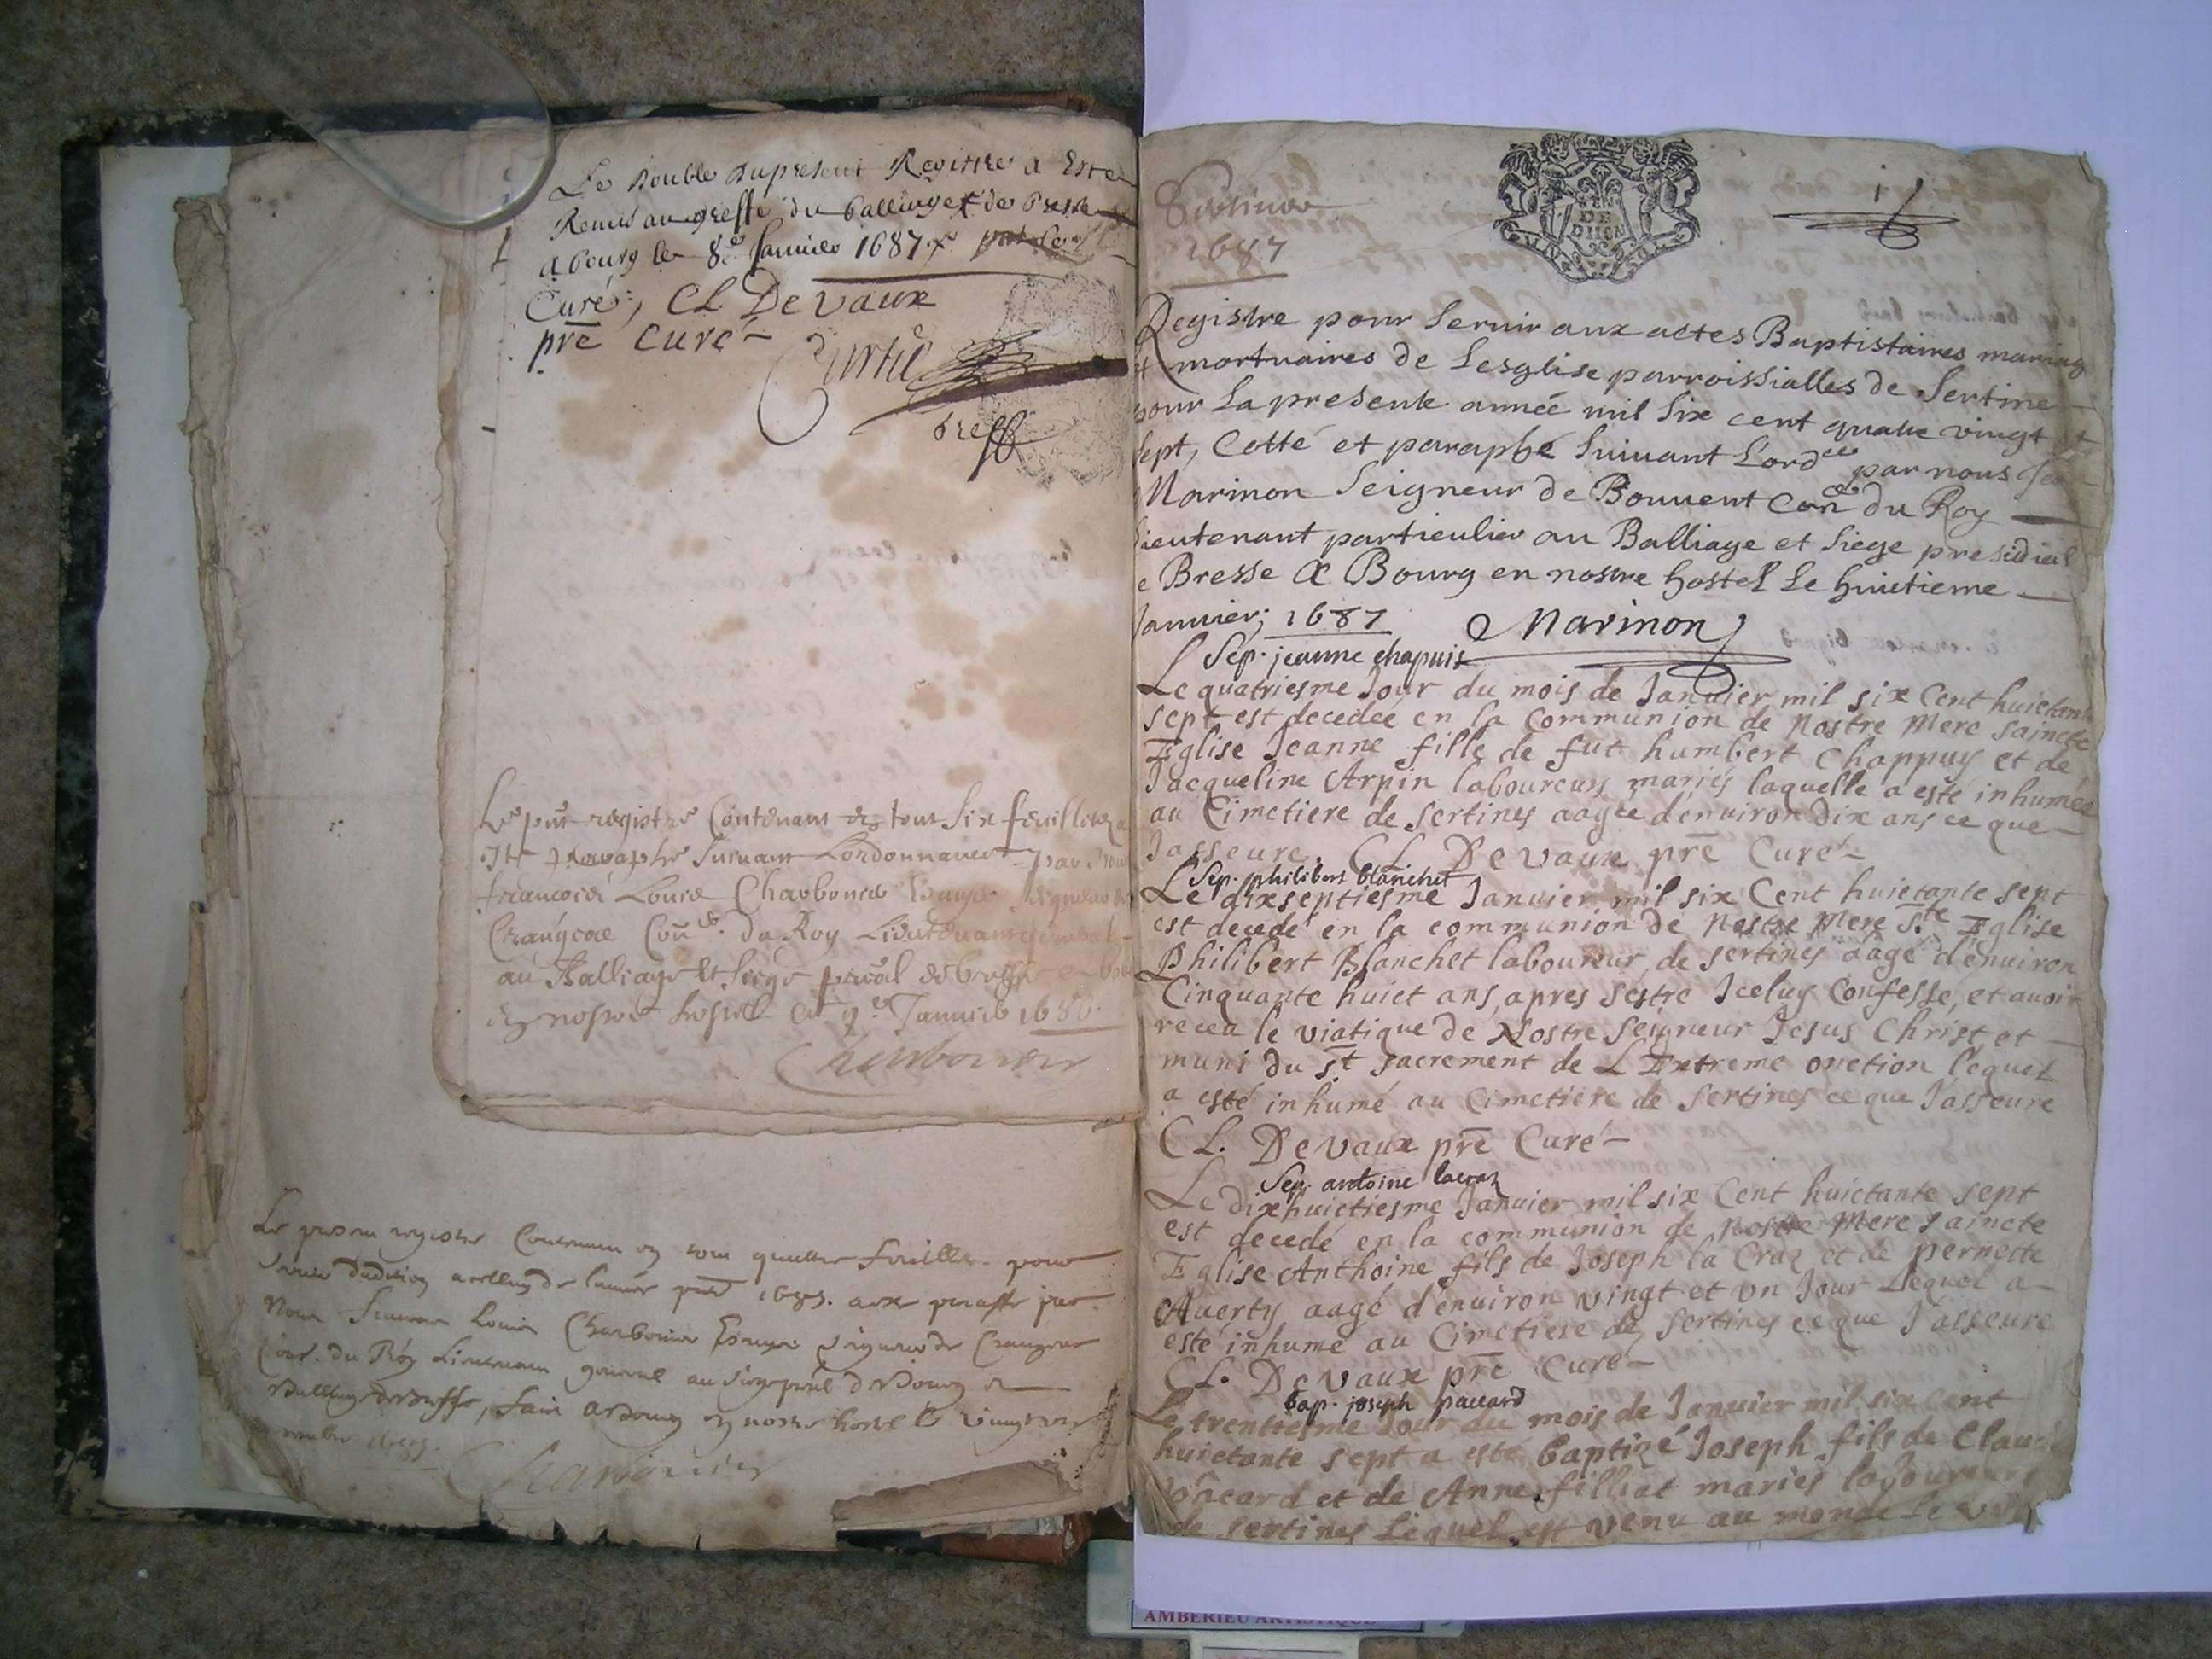 Le double du present Registre a Esté
Remis au greffe du balliage de Bresse
a bourg le 8e Janvier 1687 par le
Curé, CL DeVaux
pre Curé
Curtil
greff
Le pnt registre Contenant en tout Six feuilletz a
Esté paraphé Suivant Lordonnance par Nous
francois Louis Charbonier Escuyer Seigneur de
Crangeac Conler du Roy Lieutenant general
au Balliage et Siege pral de bresse a bourg
en nostre hostel ce 9e Janvier 1686
Charbonier
Le present registre Contenant en tout quattre feuilles pour
servir daddition a celluy de lannée pnte 1685. a este paraffé par
Nous Francois Louis Charbonier Escuyer Seigneur de Crangeac
Coner. du Roy Lieutenant general au Siege pral de Bourg et
Balliage de Bresse, fait a Bourg en nostre hostel le vingt
Charbonier
Sertines
1687
GEN
DE
DIION
1
Registre pour servir aux actes Baptistaires mariag
et mortuaires de Lesglise parroissialles de Sertine
pour La presente année mil six cent quatre vingt et
sept, Cotté et paraphé suivant L'ordce par nous Jean
Marinon Seigneur de Bouvent Conr du Roy
Lieutenant particulier au Balliage et siege presidial
de Bresse A Bourg en nostre hostel Le huictieme
Janvier, 1687 Marinon
Sep. jeanne chapuis
Le quatriesme Jour du mois de Janvier mil six Cent huictante
sept est decedée en la Communion de Nostre Mere saincte
Eglise Jeanne fille de fut humbert Chappuy et de
Jacqueline Arpin laboureurs mariés laquelle a esté inhumée
au Cimetiere de sertines aagée d'enuiron dix ans ce que
J'asseure. CL DeVaux pre Curé
Sep. philibert blanchet
Le dixseptiesme Janvier mil six Cent huictante sept
est decedé en la communion de Nostre Mere Ste Eglise
Philibert Blanchet laboureur de sertines aagé d'enuiron
Cinquante huict ans, apres s'estre Iceluy Confessé, et auoir
receu le viatique de Nostre seigneur Jesus Christ, et
muni du st sacrement de L'Extreme onction lequel
a esté inhumé au Cimetiere de sertines ce que J'asseure
CL. DeVaux pre Curé
Sep. antoine lacraz
Le dixhuictiesme Janvier mil six Cent huictante sept
est decedé en la communion de Nostre Mere saincte
Eglise Anthoine fils de Joseph la Craz et de pernette
Auerty aagé d'enuiron vingt et vn Jour Lequel a
esté inhumé au Cimetiere de sertines ce que J'asseure
CL. DeVaux pre Curé
bap. joseph paccard
Le trentiesme Jour du mois de Janvier mil six cent
huictante sept a esté baptizé Joseph fils de Claude
paccard et de Anne filliat mariés laboureurs
de sertines Lequel est venu au monde le
AMBERIEU ARTISTIQUE